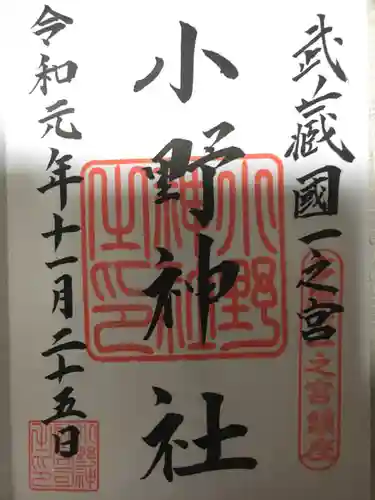 武蔵國一之宮
小野神社
令和元年十一月二十五日
小野神社之印
一之宮鎮座